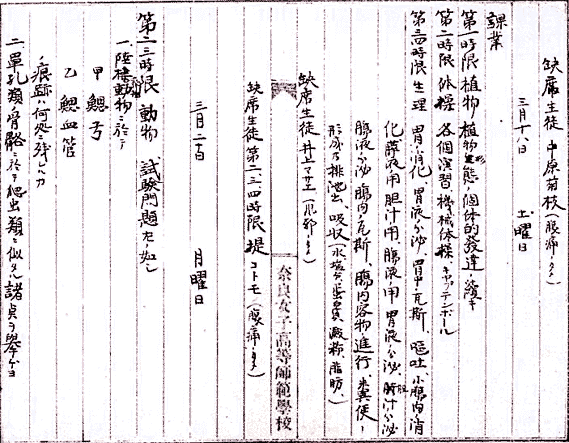 缺席生徒 中原菊枝(腹痛ノタメ)
三月十八日 土曜日
課業
第一時限 植物 植物形態、個体的發達ノ續キ
第二時限 体操 各個演習、機械体操 キャプテンボール
第三四時限 生理 胃ノ消化 胃液ノ分泌 胃中ノ瓦斯、嘔吐、小腸内ノ消
化 膵液ノ用 胆汁ノ用、腸液ノ用 胃液ノ分泌、胆汁ノ分泌
腸液ノ分泌 腸内ノ瓦斯、腸内容物ノ進行、糞便ノ
形成乃排泄、吸収(水塩分蛋白質澱粉、脂肪、)
缺席生徒 井上マサエ(風邪ノタメ)
缺席生徒 第二、三四時限 堤コトモ(腹痛ノタメ)
奈良女子高等師範學校
三月二十日 月曜日
第二三時限 動物 試験問題左ノ如シ
一、陸棲動物ニ於テ
甲 鰓弓
乙 鰓血管
ノ痕跡ハ何処ニ残レルカ
二、單孔類ノ骨骼ニ於テ爬虫類ニ似タル諸貞ヲ擧ゲヨ